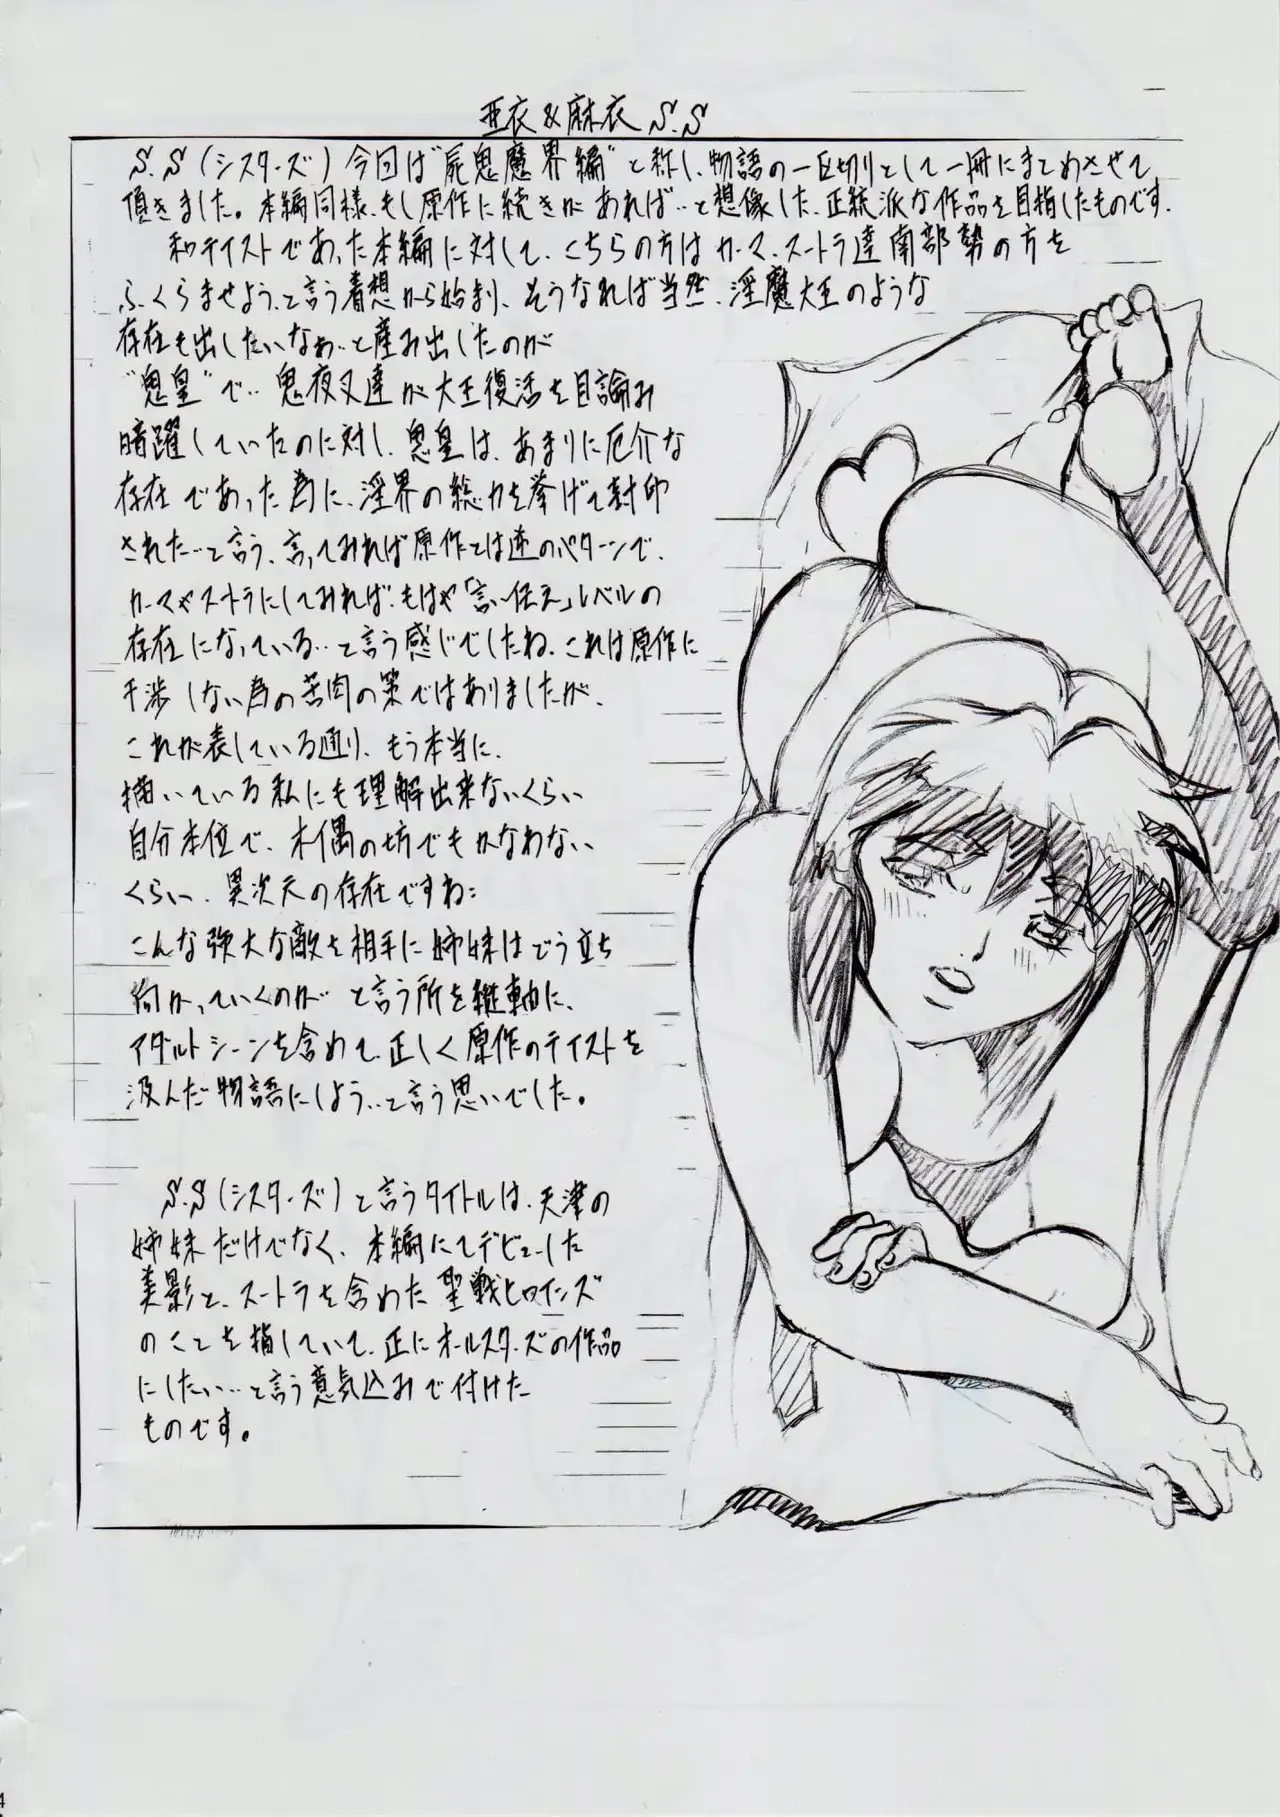 亜衣&麻衣 S.S
S.S(シスターズ)今回は"屍鬼魔界編"と称し、物語の一区切りとして一冊にまとめさせて
頂きました。本編同様、もし原作に続きがあれば…と想像した、正統派な作品を目指したものです。
和テイストであった本編に対して、こちらの方はカーマ、スートラ達南部勢の方を
ふくらませよう、と言う着想から始まり、そうなれば当然、淫魔大王のような
存在も出したいなぁ…と産み出したのが
"鬼皇"で…鬼夜叉達が大王復活を目論み
暗躍していたのに対し、鬼皇は、あまりに厄介な
存在であった為に、淫界の総力を挙げて封印
された…と言う、言ってみれば原作とは逆のパターンで、
カーマやスートラにしてみれば、もはや「言い伝え」レベルの
存在になっている…と言う感じでしたね、これは原作に
干渉しない為の苦肉の策ではありましたが、
これが表している通り、もう本当に、
描いている私にも理解出来ないくらい
自分本位で、木偶の坊でもかなわない
くらい、異次元の存在ですね:
こんな強大な敵を相手に姉妹はどう立ち
向かっていくのか゛と言う所を縦軸に、
アダルトシーンを含めて、正しく原作のテイストを
汲んだ物語にしよう…と言う思いでした。
S.S(シスターズ)と言うタイトルは、天津の
姉妹だけでなく、本編にてデビューした
美影と、スートラを含めた聖戦ヒロインズ
のことを指していて、正にオールスターズの作品
にしたい…と言う意気込みで付けた
ものです。
4